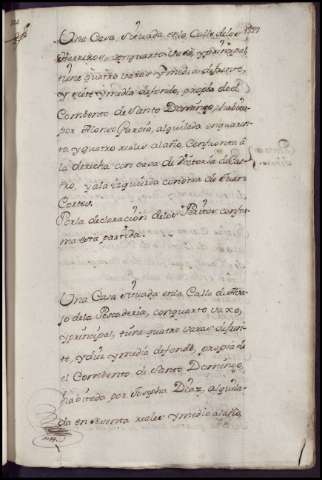 Una Casa, Situada en la Calle de los
Herreros, con quarto vaxo, y principal,
tiene quatro varas y media de frente,
y siete y media de fondo, propia de el
Combento de Santo Domingo, habitada
por Alonso Garzia, alquilada en quaren
ta y quatro reales al año, Confronta à
la derecha con casa de Victoria de Cas
tro, y a la izquierda con otra de Juan
Cortes.
Por la declaracion de los Peritos consta
ma esta partida.
Una Casa Situada en la Calle de Aba
jo de la Pescaderia, con quarto vaxo,
y principal, tiene quatro varas de fren
te, y diez y media de fondo, propia de
el Combento de Santo Domingo,
habitada por Josepha Diaz, alquila
da en setenta reales y medio al año